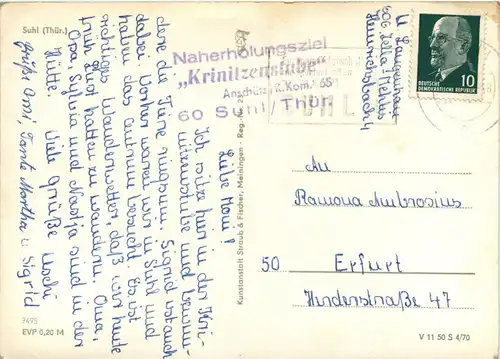 Suhl (Thür.)
Naherholungsziel
„Krinitzenstube"
Anschütz, R. Kom. 65
60 Suhl/Thür.
SUHL
DEUTSCHE
DEMOKRATISCHE REPUBLIK
10
Liebe Moni!
Ich sitze hier in der Kri-
nitzenstube und bewun-
dere die Tiere ringsum. Sigrid ist auch
dabei. Vorher waren wir in Suhl und
haben das Centrum besucht. Es ist
richtiges Wanderwetter, daß wir heute
früh Lust hatten zu wandern. Oma,
Opa, Sylvia und Nastja sind in der
Hütte. Viele Grüße Uschi
Grüß Omi, Tante Martha u. Sigrid
606 Zella-Mehlis
An
Ramona Ambrosius
50 Erfurt
Huderstraße 47
Kunstanstalt Straub & Fischer, Meiningen - Reg.-Nr.
7495
EVP 0,20 M
V 11 50 S 4/70